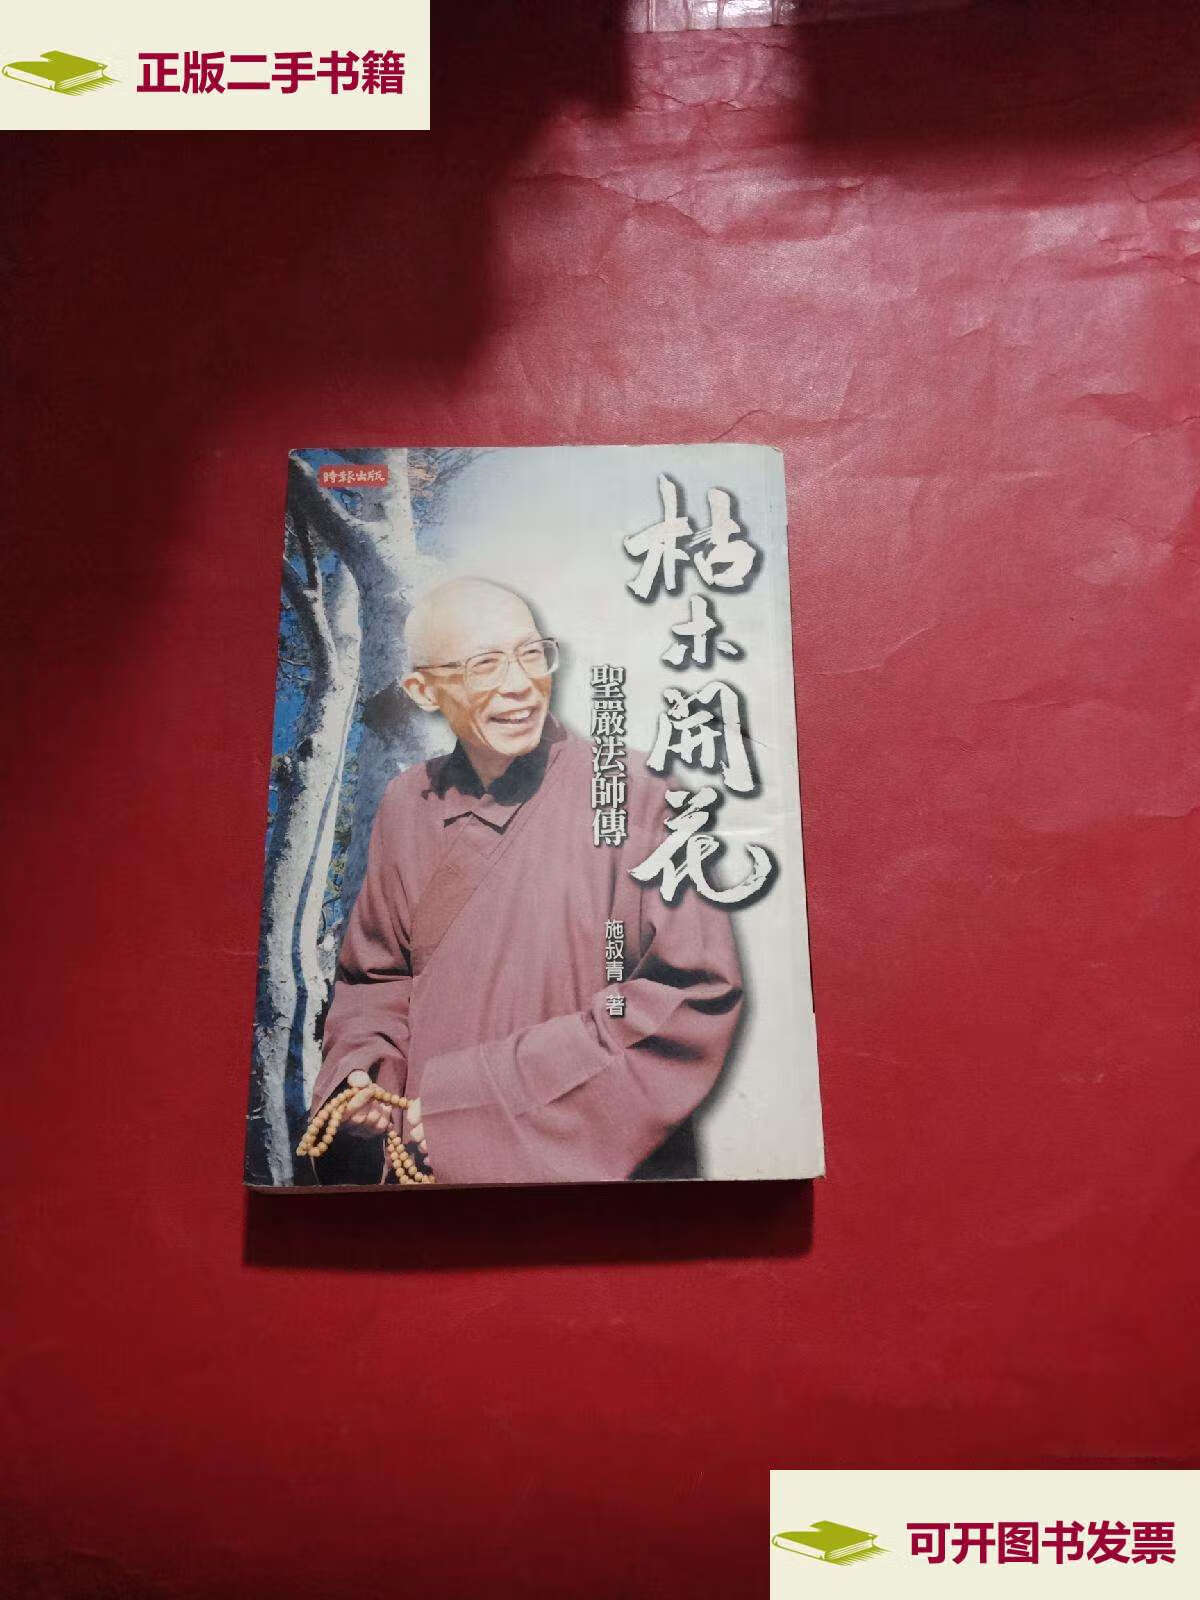 正版二手书籍
時報出版
枯木開花
聖嚴法師傳
施叔青 著
可开图书发票